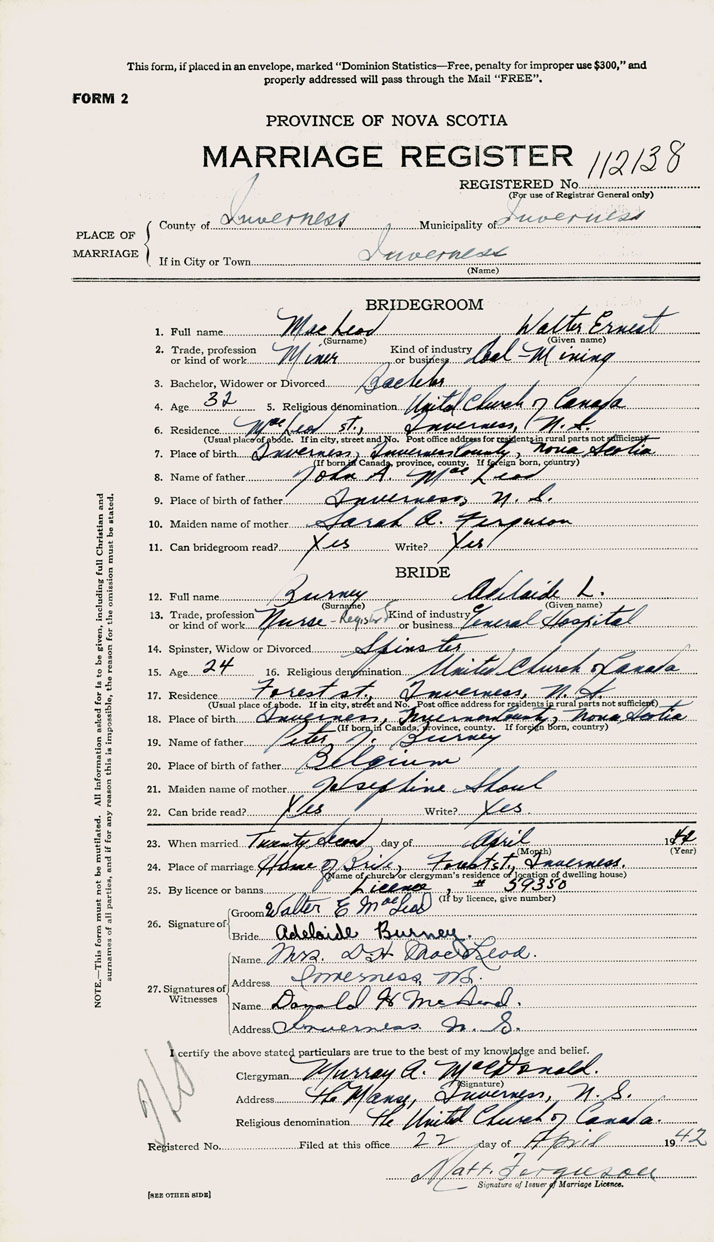 This form, if placed in an envelope, marked "Dominion Statistics—Free, penalty for improper use $300," and
properly addressed will pass through the Mail "FREE".
FORM 2
PROVINCE OF NOVA SCOTIA
MARRIAGE REGISTER 112138
REGISTERED No.
(For use of Registrar General only)
PLACE OF MARRIAGE
County of Inverness Municipality of Inverness
If in City or Town Inverness
(Name)
BRIDEGROOM
1. Full name MacLeod Walter Ernest
(Surname) (Given name)
2. Trade, profession or kind of work Miner Kind of industry or business Coal-Mining
3. Bachelor, Widower or Divorced Bachelor
4. Age 32 5. Religious denomination United Church of Canada
6. Residence MacLeod st., Inverness, N.S.
(Usual place of abode. If in city, street and No. Post office address for residents in rural parts not sufficient)
7. Place of birth Inverness, Inverness County, Nova Scotia
(If born in Canada, province, county. If foreign born, country)
8. Name of father John A. MacLeod
9. Place of birth of father Inverness, N. S.
10. Maiden name of mother Sarah A. Ferguson
11. Can bridegroom read? Yes Write? Yes
BRIDE
12. Full name Burney Adelaide L.
(Surname) (Given name)
13. Trade, profession or kind of work Nurse - Register'd Kind of industry or business General Hospital
14. Spinster, Widow or Divorced Spinster
15. Age 24 16. Religious denomination United Church of Canada
17. Residence Forest st., Inverness, N. S
(Usual place of abode. If in city, street and No. Post office address for residents in rural parts not sufficient)
18. Place of birth Inverness, Inverness County, Nova Scotia
(If born in Canada, province, county. If foreign born, country)
19. Name of father Peter Burney
20. Place of birth of father Belgium
21. Maiden name of mother Josephine
22. Can bride read? Yes Write? Yes.
23. When married Twenty Second day of April 1942
(Month) (Year)
24. Place of marriage Home of Bride, Forest st., Inverness.
(Name of church or clergyman's residence or location of dwelling house)
25. By licence or banns Licence, # 59350
(If by licence, give number)
26. Signature of
Groom Walter E MacLeod
Bride Adelaide Burney.
27. Signatures of Witnesses
Name Mrs. D H MacLeod.
Address Inverness, N.S.
Name Donald H McLeod.
Address Inverness N. S.
I certify the above stated particulars are true to the best of my knowledge and belief.
Clergyman Murray A. MacDonald.
(Signature)
Address The Manse, Inverness, N. S.
Religious denomination The United Church of Canada.
Registered No. Filed at this office 22 day of April 1942
Matt. Ferguson
Signature of Issuer of Marriage Licence.
[SEE OTHER SIDE]
NOTE.—This form must not be mutilated. All information asked for is to be given, including full Christian and
surnames of all parties, and if for any reason this is impossible, the reason for the omission must be stated.